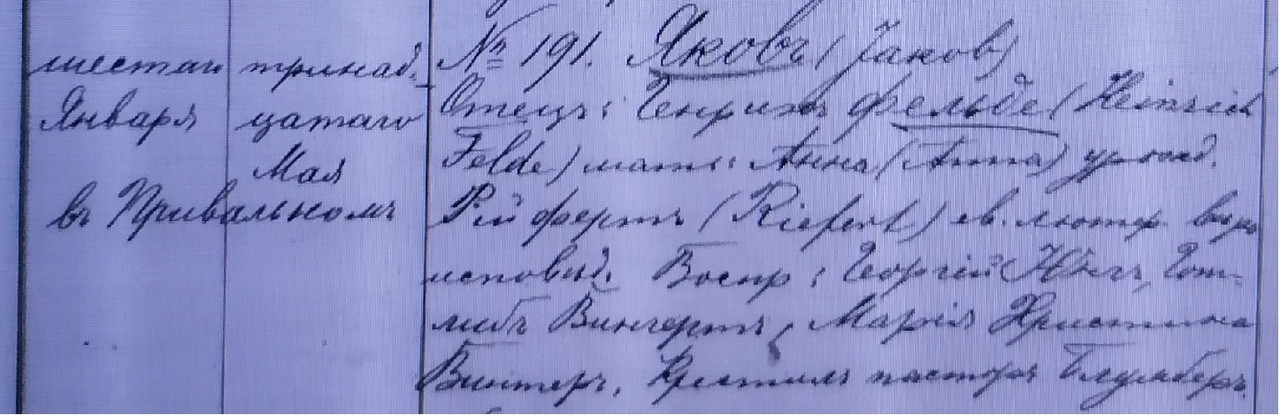 шестаго
Января
тринад-
цатаго
Мая
въ Привальномъ
№ 191. Яковъ (Jакоb)
Отецъ: Генрихъ Фельде (Heinrich
Felde) мать: Анна (Anna) урожд.
Рифертъ (Riefert) ев. лютер. вѣро
исповѣд. Воспр: Георгій Юнгъ, Гот-
либъ Винчертъ, Марія Христина
Винтеръ. Крестилъ пасторъ Блумберъ.